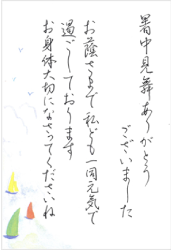 暑中見舞ありがとう
ございました
お蔭さまで私ども一同元気で
過ごしております
お身体大切になさってくださいね